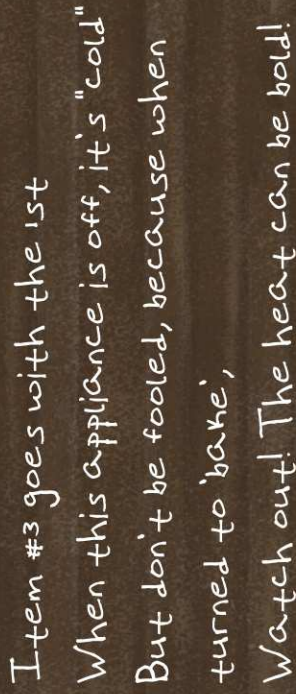 Item #3 goes with the 1st
When this appliance is off, it's "cold"
But don't be fooled, because when
turned to 'bake',
Watch out! The heat can be bold!